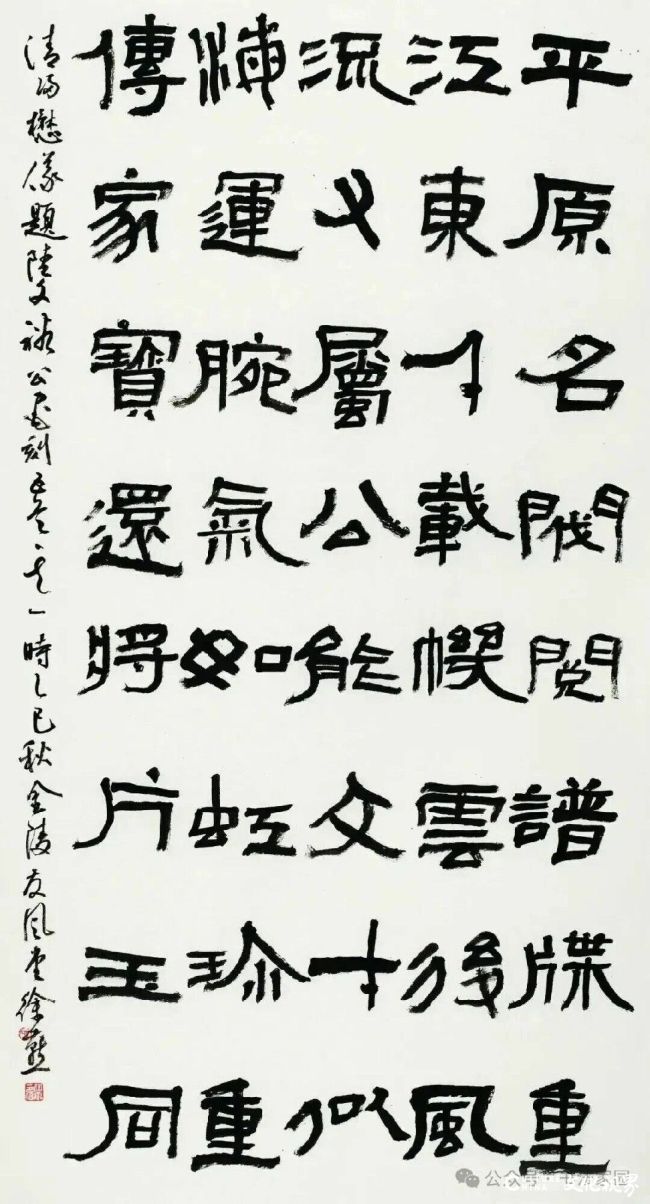 平原名閥閱譜牒重
江東千載機雲後風
流又屬公能文才似
海運腕氣如虹珍重
傳家寶還將片玉同
清歸懋儀題陸文裕公 刻 一時乙巳秋金陵友風堂徐燕
公众号